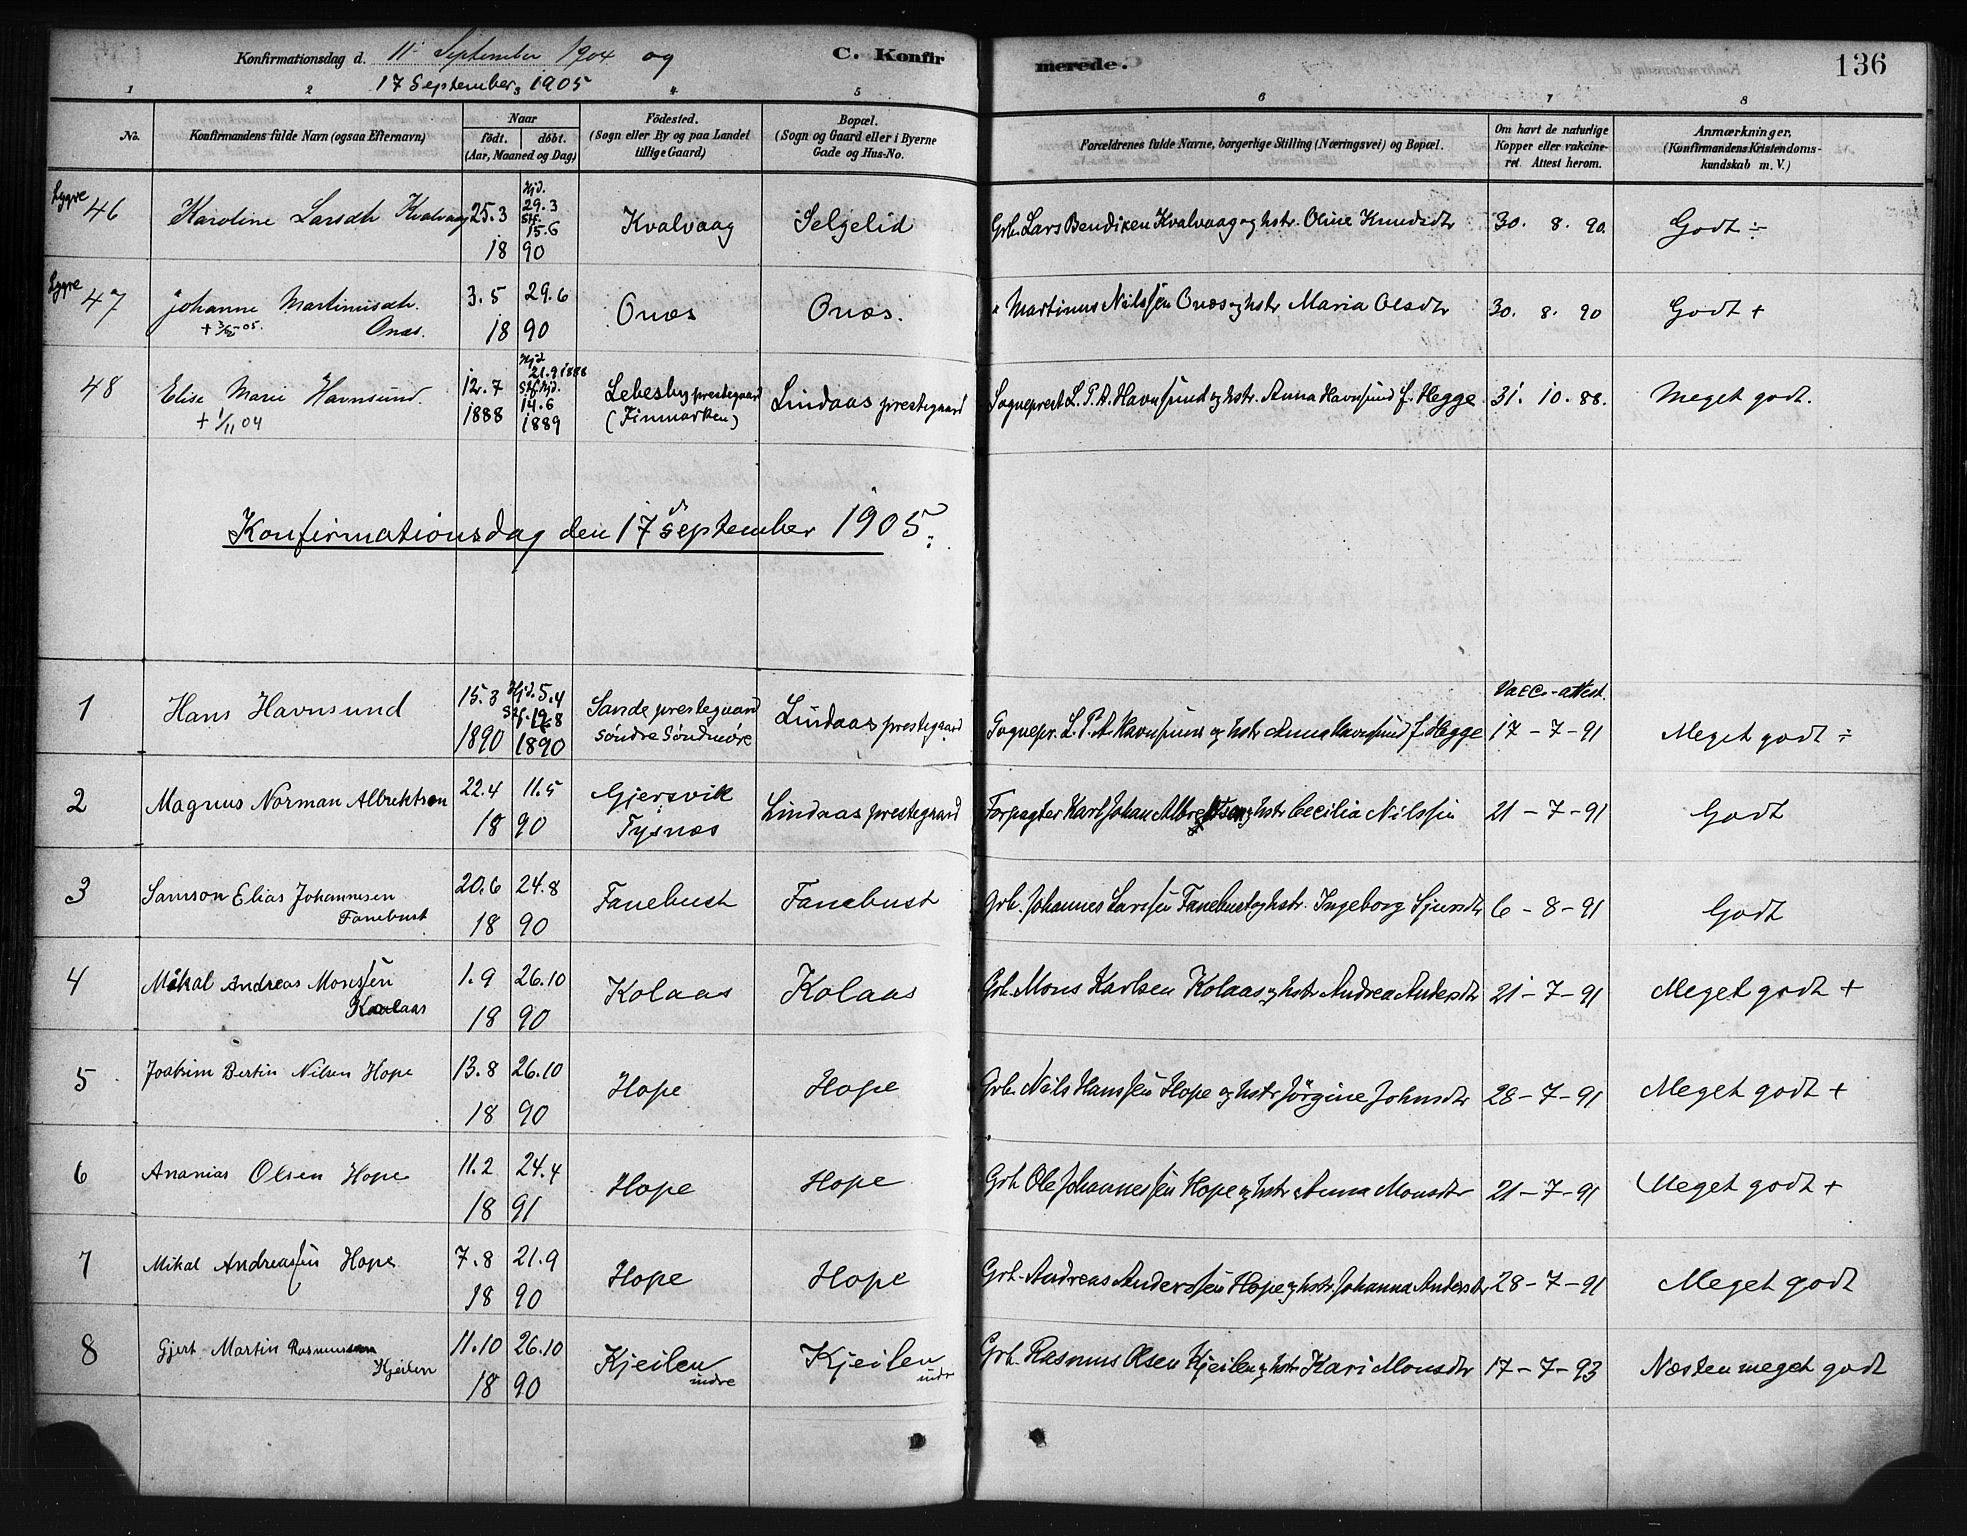 Konfirmationsdag d. 11 September 1904 og
17 September 1905
C. Konfirmerede.
136
1 2 3 4 5 6 7 8
No.
Konfirmandens fulde Navn (ogsaa Efternavn)
Naar
födt. döbt.
(Aar, Maaned og Dag)
Födested.
(Sogn eller By og paa Landet
tillige Gaard)
Bopæl.
(Sogn og Gaard eller i Byerne
Gade og Hus-No.
Forældrenes fulde Navne, borgerlige Stilling (Næringsvei) og Bopæl.
Om havt de naturlige
Kopper eller vakcine-
ret. Attest herom.
Anmærkninger.
(Konfirmandens Kristendoms-
kundskab m. V.)
Lygre
46 Karoline Larsdtr Kvalvaag 25.3 18 Hjd. 29.3 Stf. 15.6 90 Kvalvaag Selgelid Grb. Lars Bendixen Kvalvaag og hstr. Oline Knudsdtr 30. 8. 90. Godt ÷
Lygre
47 Johanne Martinusdtr. Onæs. 3.5 18 29.6 90 Onæs Onæs. " Martinus Nilssen Onæs og hstr Maria Olsdtr 30. 8. 90 Godt +
48 Elise Marie Havnsund. + 1/11 04 12.7 1888 Hjd. 21.9 1888 Stf. 14.6 1889 Lebesby prestegaard (Finmarken) Lindaas prestegaard Sogneprest L. P. A. Havnsund og hstr. Anna Havnsund f. Hegge 31. 10. 88. Meget godt.
Konfirmationsdag den 17 september 1905.
Vacc.-attest.
1 Hans Havnsund 15.3 1890 Hjd. 5.4 Stf. 19.8 1890 Sande prestegaard söndre Söndmöre Lindaas prestegaard Sognepr. L. P. A. Havnsund og hstr Anna Havnsund f. Hegge 17-7-91 Meget godt ÷
2 Magnus Norman Albrektsen 22.4 18 11.5 90 Gjersvik Tysnæs Lindaas prestegaard Forpagter Karl Johan Albrektsen og hstr Cecilia Nilssen 21-7-91 Godt
3 Samson Elias Johannesen Fanebust 20.6 18 24.8 90 Fanebust Fanebust Grb. Johannes Larssen Fanebust og hstr. Ingeborg Sjursdtr 6-8-91 Godt
4 Mikal Andreas Monssen Kolaas 1.9 18 26.10 90 Kolaas Kolaas Grb. Mons Karlsen Kolaas og hstr Andrea Andersdtr 21-7-91 Meget godt +
5 Joakim Bertin Nilsen Hope 13.8 18 26.10 90 Hope Hope Grb. Nils Hanssen Hope og hstr Jörgine Johnsdtr 28-7-91 Meget godt +
6 Ananias Olsen Hope 11.2 18 24.4 91 Hope Hope Grb. Ole Johannessen Hope og hstr Anna Monsdtr 21-7-91 Meget godt +
7 Mikal Andreassen Hope 7.8 18 21.9 90 Hope Hope Grb. Andreas Anderssen Hope og hstr. Johanna Andersdtr 28-7-91 Meget godt
8 Gjert Martin Rasmussen Kjeilen 11.10 18 26.10 90 Kjeilen indre Kjeilen indr Grb. Rasmus Olsen Kjeilen og hstr Kari Monsdtr 17-7-93 Næsten meget godt